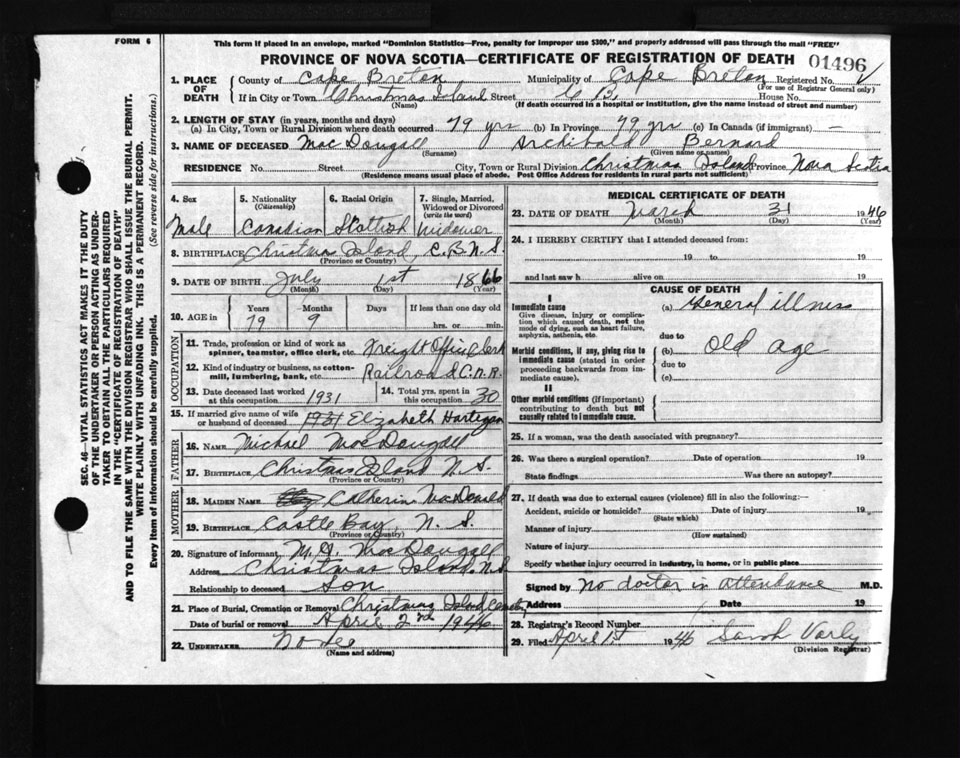 FORM 6
This form if placed in an envelope, marked "Dominion Statistics—Free, penalty for improper use $300," and properly addressed will pass through the mail "FREE"
PROVINCE OF NOVA SCOTIA—CERTIFICATE OF REGISTRATION OF DEATH 01496
1. PLACE OF DEATH County of Cape Breton Municipality of Cape Breton Registered No.
(For use of Registrar General only)
If in City or Town Christmas Island Street C B House No.
(Name) (If death occurred in a hospital or institution, give the name instead of street and number)
2. LENGTH OF STAY (in years, months and days)
(a) In City, Town or Rural Division where death occurred 79 yrs (b) In Province 79 yrs (c) In Canada (if immigrant) —
3. NAME OF DECEASED MacDougall Archibald Bernard
(Surname) (Given name or names)
RESIDENCE No. Street City, Town or Rural Division Christmas Island Province Nova Scotia
(Residence means usual place of abode. Post Office Address for residents in rural parts not sufficient)
4. Sex 5. Nationality (Citizenship) 6. Racial Origin 7. Single, Married, Widowed or Divorced (write the word)
Male Canadian Scottish Widower
8. BIRTHPLACE Christmas Island, C.B. N.S.
(Province or Country)
9. DATE OF BIRTH July 1st 1866
(Month) (Day) (Year)
10. AGE in Years Months Days If less than one day old
79 9 hrs. or min.
OCCUPATION
11. Trade, profession or kind of work as spinner, teamster, office clerk, etc. Freight Office Clerk
12. Kind of industry or business, as cotton-mill, lumbering, bank, etc. Railroad C.N.R.
13. Date deceased last worked at this occupation 1931 14. Total yrs. spent in this occupation 30
15. If married give name of wife or husband of deceased 1931 Elizabeth Hartigan
FATHER
16. NAME Michael MacDougall
17. BIRTHPLACE Christmas Island N.S.
(Province or Country)
MOTHER
18. MAIDEN NAME Catherine MacDonald
19. BIRTHPLACE Castle Bay, N.S.
(Province or Country)
20. Signature of informant M. A. MacDougall
Address Christmas Island. N.S
Relationship to deceased Son
21. Place of Burial, Cremation or Removal Christmas Island Cemetry
Date of burial or removal April 2nd 1946
22. UNDERTAKER
(Name and address)
MEDICAL CERTIFICATE OF DEATH
23. DATE OF DEATH March 31 1946
(Month) (Day) (Year)
24. I HEREBY CERTIFY that I attended deceased from:
19 to 19
and last saw h alive on 19
CAUSE OF DEATH
I
Immediate cause (a) General illness
Give disease, injury or complication which caused death, not the mode of dying, such as heart failure, asphyxia, asthenia, etc.
due to
Morbid conditions, if any, giving rise to immediate cause (stated in order proceeding backwards from immediate cause).
(b) old age
due to
(c)
II
Other morbid conditions (if important) contributing to death but not causally related to immediate cause.
25. If a woman, was the death associated with pregnancy?
26. Was there a surgical operation? Date of operation 19
State findings Was there an autopsy?
27. If death was due to external causes (violence) fill in also the following:—
Accident, suicide or homicide? Date of injury 19
(State which)
Manner of injury
(How sustained)
Nature of injury
Specify whether injury occurred in industry, in home, or in public place
Signed by No doctor in attendance M.D.
Address Date 19
28. Registrar's Record Number
29. Filed April 1st 1946 Sarah Varly
(Division Registrar)
SEC. 46—VITAL STATISTICS ACT MAKES IT THE DUTY
OF THE UNDERTAKER OR PERSON ACTING AS UNDER-
TAKER TO OBTAIN ALL THE PARTICULARS REQUIRED
IN THE "CERTIFICATE OF REGISTRATION OF DEATH"
AND TO FILE THE SAME WITH THE DIVISION REGISTRAR WHO SHALL ISSUE THE BURIAL PERMIT.
WRITE PLAINLY WITH UNFADING INK. THIS IS A PERMANENT RECORD.
Every item of information should be carefully supplied. (See reverse side for instructions.)